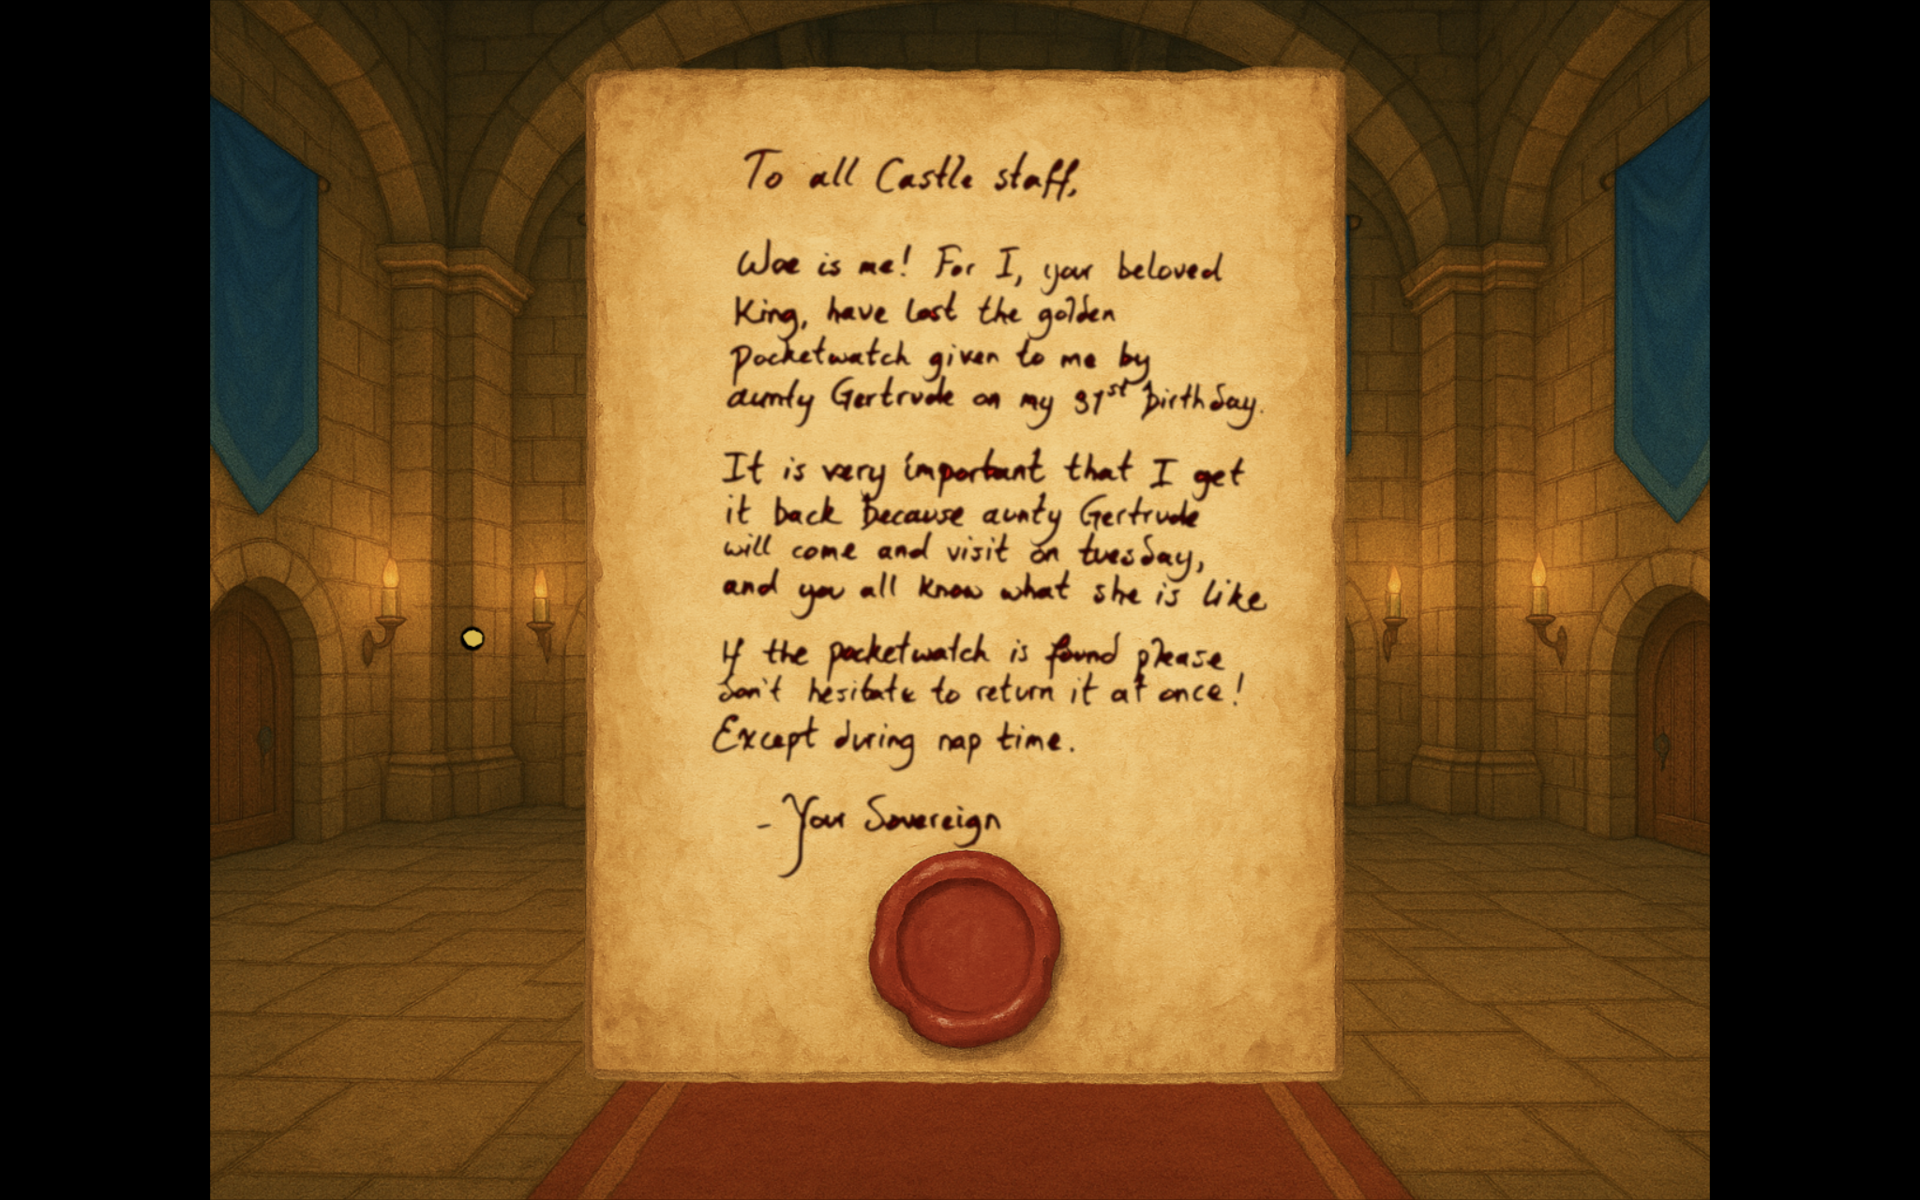 To all Castle staff,
Woe is me! For I, your beloved
King, have lost the golden
pocketwatch given to me by
aunty Gertrude on my 31st birthday.
It is very important that I get
it back because aunty Gertrude
will come and visit on tuesday,
and you all know what she is like
If the pocketwatch is found please
don't hesitate to return it at once!
Except during nap time.
- Your Sovereign